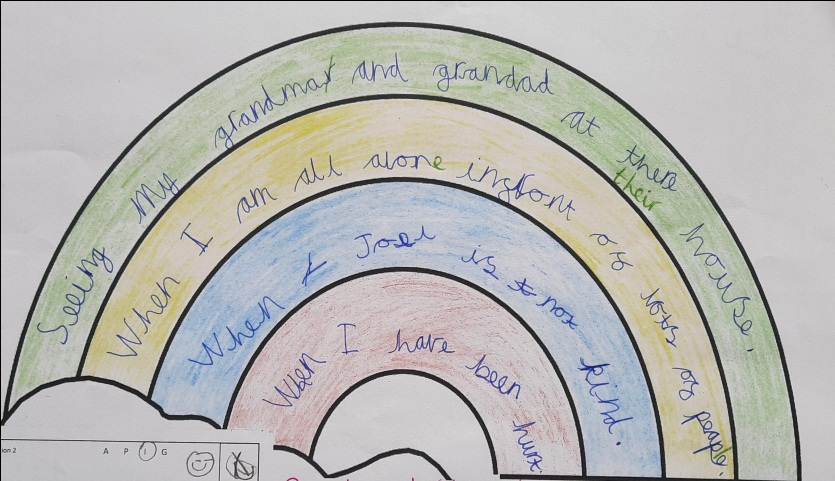 Seeing my grandmar and grandad at there house.
their
When I am all alone infront of lots of people.
When Joel is not kind.
When I have been hurt.
ion 2
A P I G